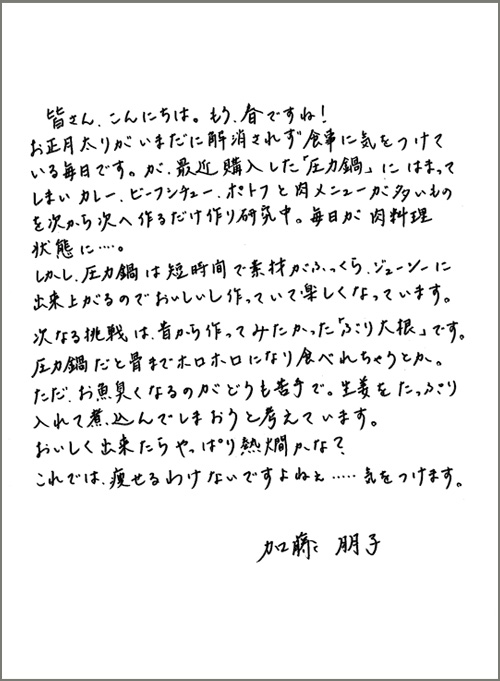 皆さん、こんにちは。もう、春ですね！
お正月太りがいまだに解消されず食事に気をつけて
いる毎日です。が、最近購入した「圧力鍋」にはまって
しまいカレー、ビーフシチュー、ポトフと肉メニューが多いもの
を次から次へ作るだけ作り研究中。毎日が肉料理
状態に…。
しかし、圧力鍋は短時間で素材がふっくら、ジューシーに
出来上がるのでおいしいし作っていて楽しくなっています。
次なる挑戦は、昔から作ってみたかった「ぶり大根」です。
圧力鍋だと骨までホロホロになり食べれちゃうとか。
ただ、お魚臭くなるのがどうも苦手で。生姜をたっぷり
入れて煮込んでしまおうと考えています。
おいしく出来たらやっぱり熱燗かな？
これでは、痩せるわけないですよねぇ……気をつけます。
加藤 朋子